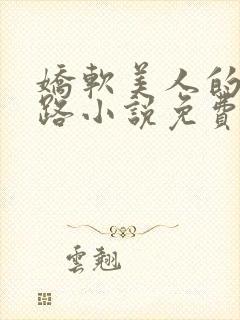 嬌軟美人的
路小說免費
雲翹